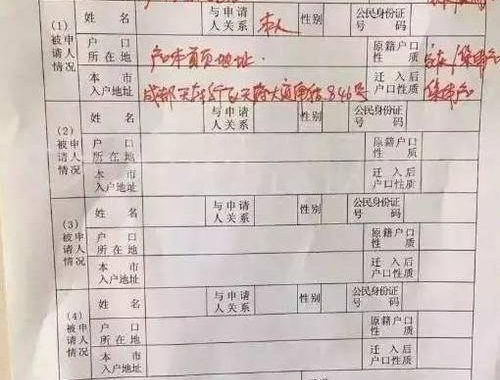 (1) 被申请人情况 姓 名 与申请人关系 本人 性别 公民身份证号 码
户 口 所 在 地 户口本首页地址 原籍户口性 质
本 市 入户地址 迁 入 后 户口性质
(2) 被申请人情况 姓 名 与申请人关系 性别 公民身份证号 码
户 口 所 在 地 原籍户口性 质
本 市 入户地址 迁 入 后 户口性质
(3) 被申请人情况 姓 名 与申请人关系 性别 公民身份证号 码
户 口 所 在 地 原籍户口性 质
本 市 入户地址 迁 入 后 户口性质
(4) 被申请人情况 姓 名 与申请人关系 性别 公民身份证号 码
户 口 所 在 地 原籍户口性 质
本 市 入户地址 迁 入 后 户口性质